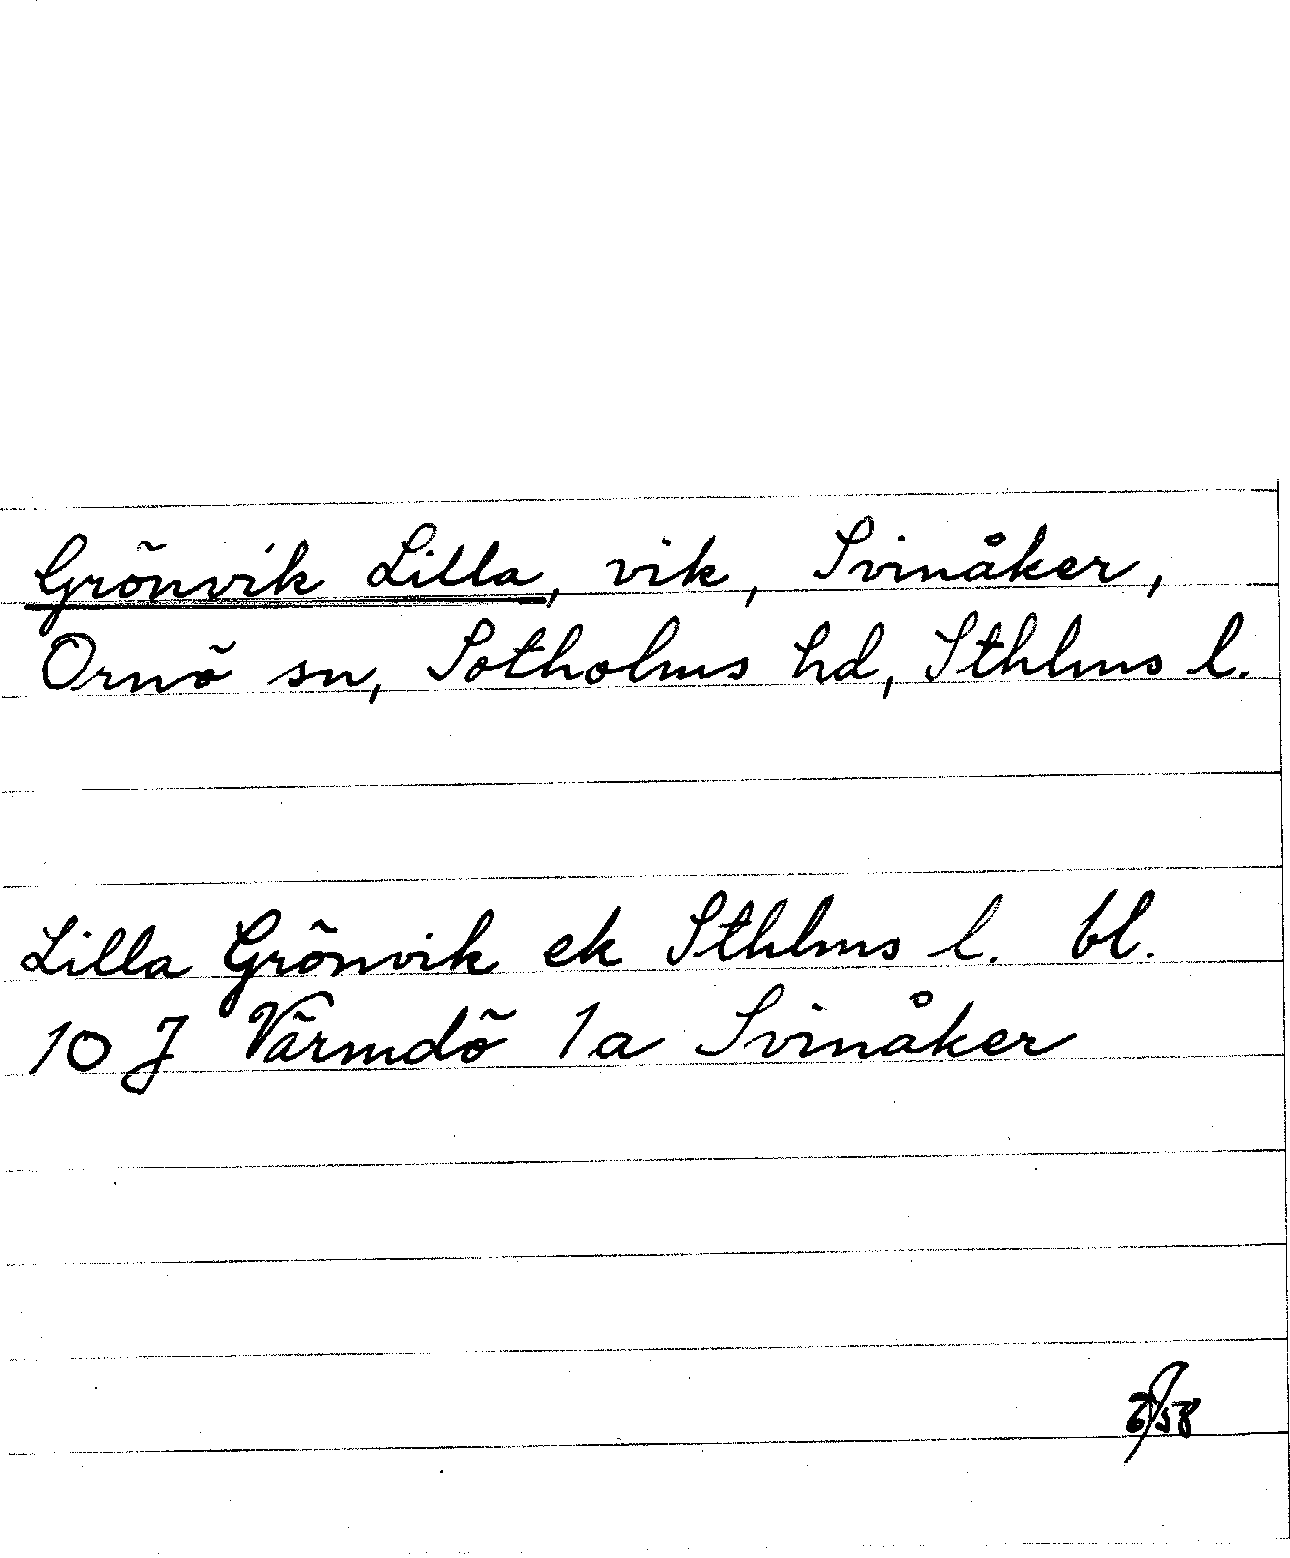 Grönvik Lilla, vik, Svinåker,
Ornö sn, Sotholms hd, Sthlms l.
Lilla Grönvik ek Sthlms l. bl.
10 J Värmdö 1a Svinåker